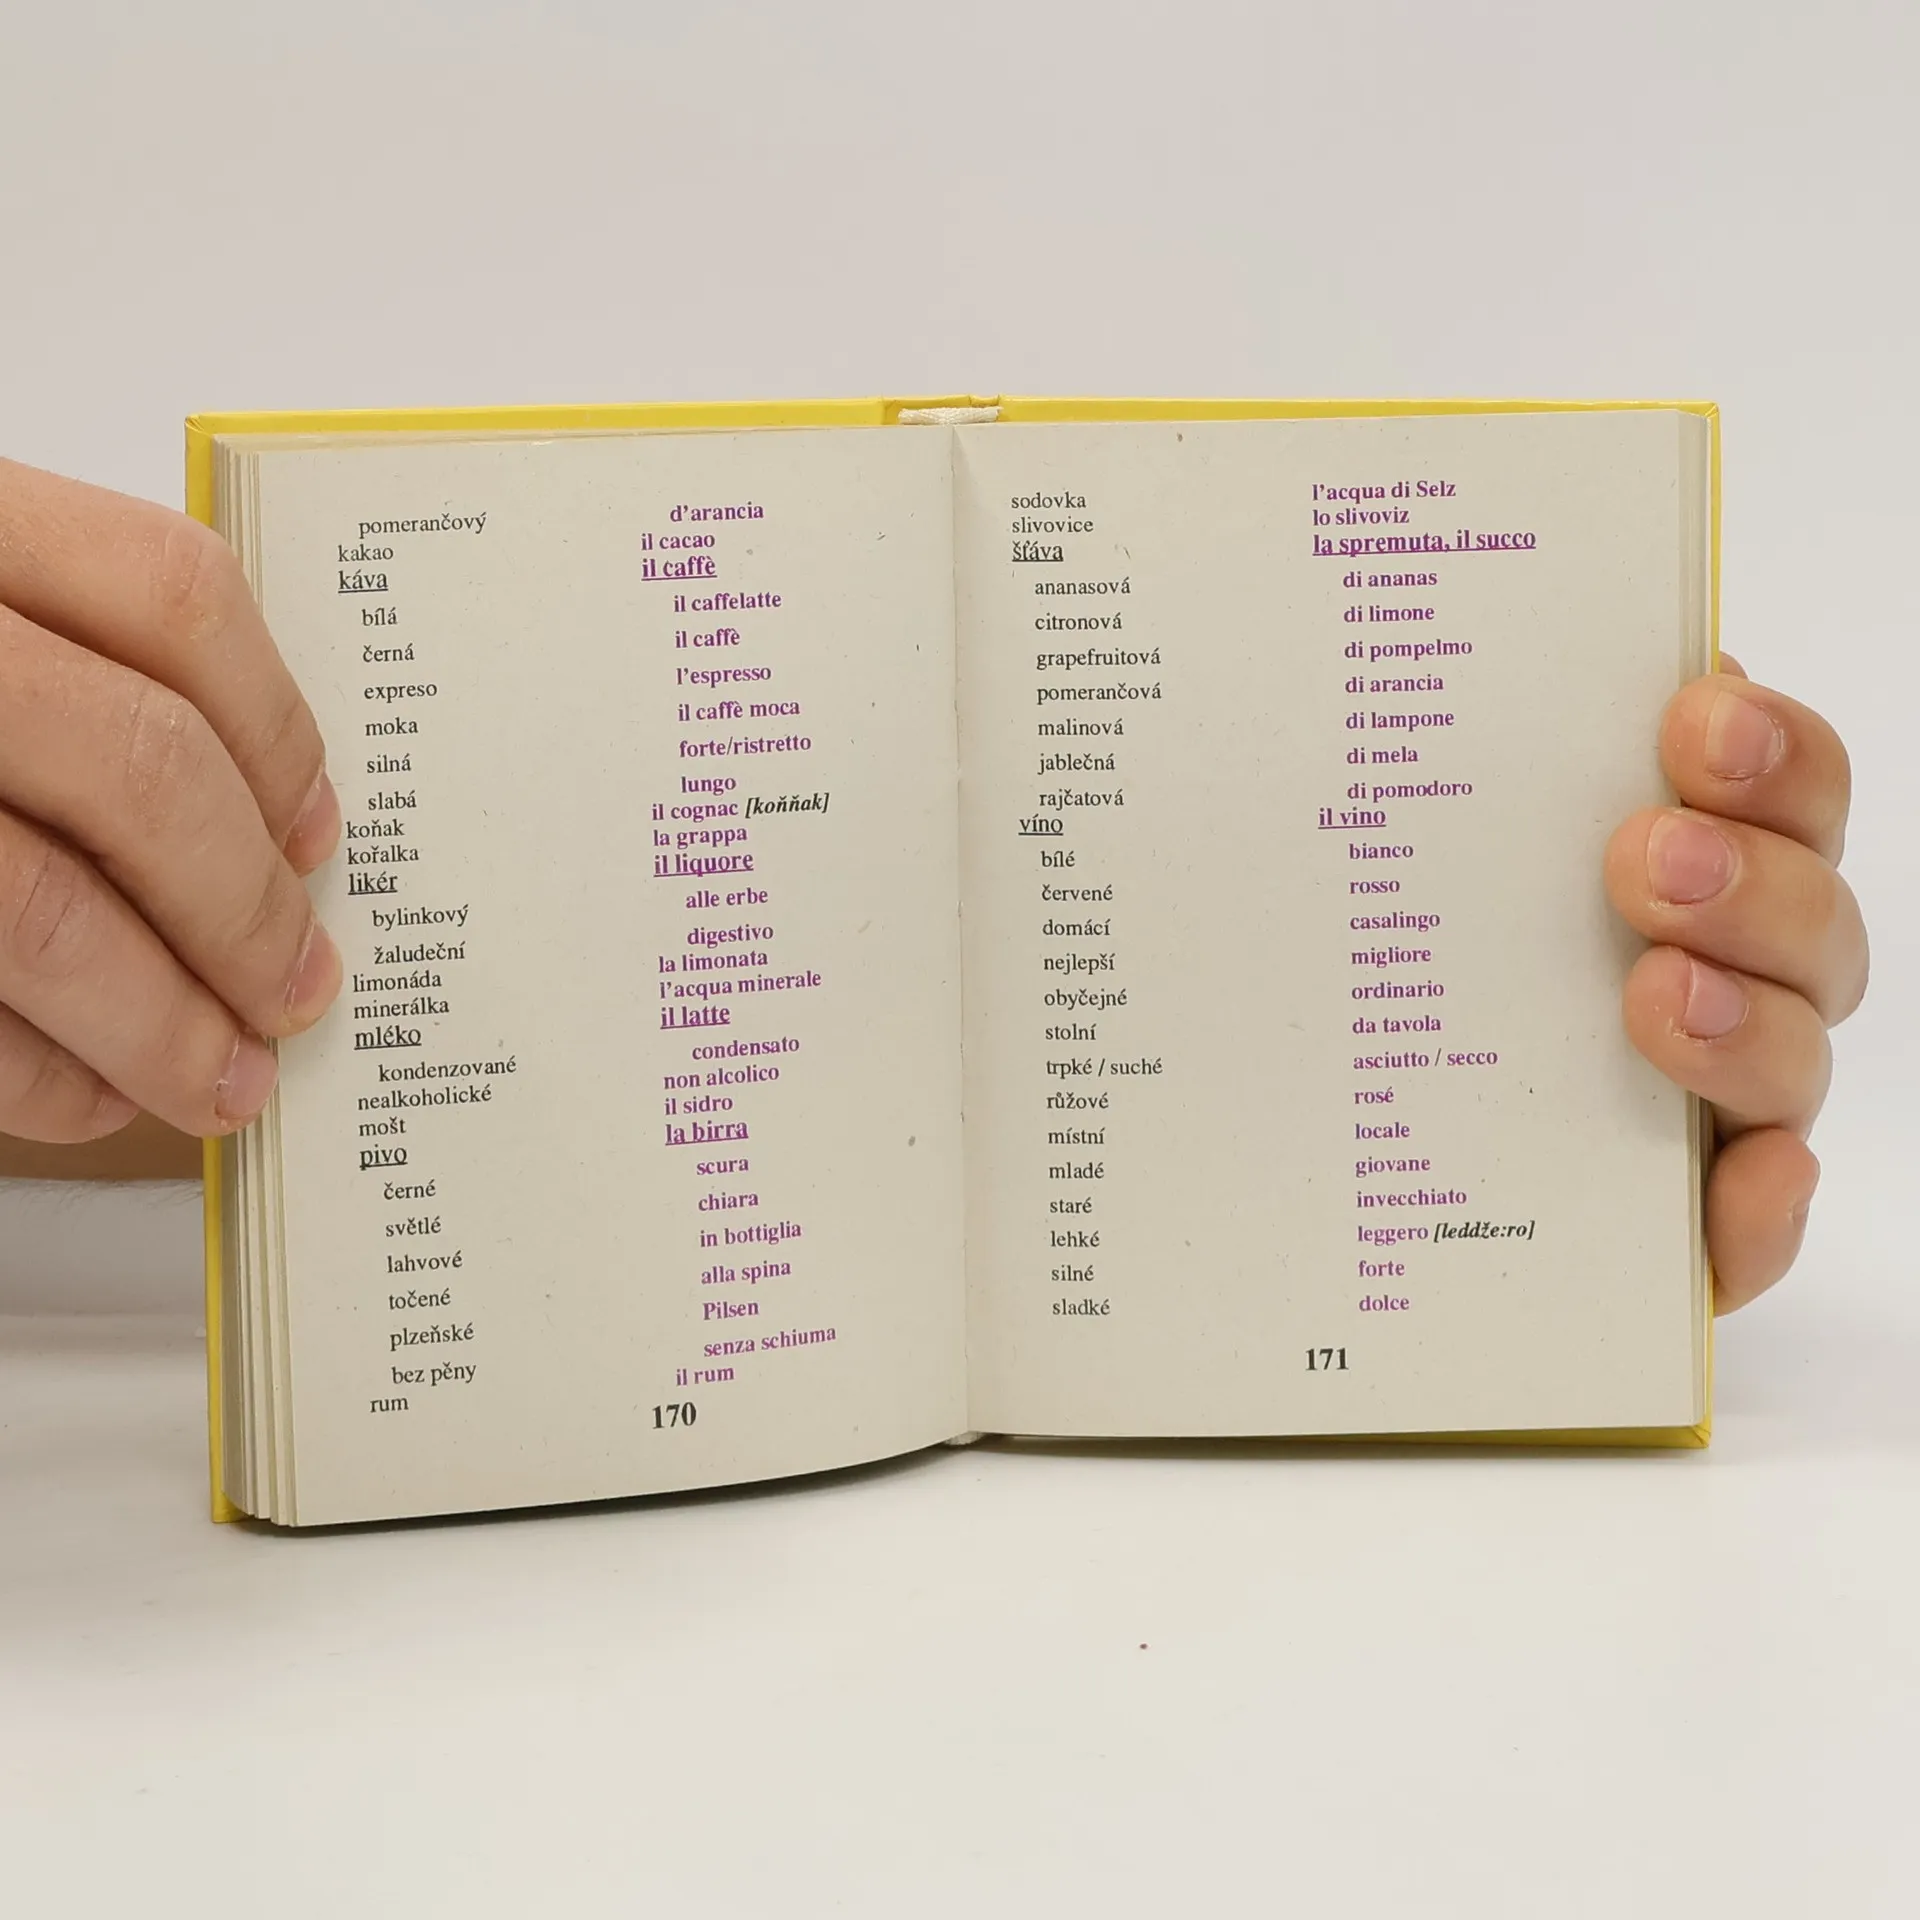 pomerančový d’arancia
kakao il cacao
káva il caffè
bílá il caffelatte
černá il caffè
expreso l’espresso
moka il caffè moca
silná forte/ristretto
slabá lungo
koňak il cognac [koňňak]
kořalka la grappa
likér il liquore
bylinkový alle erbe
žaludeční digestivo
limonáda la limonata
minerálka l’acqua minerale
mléko il latte
kondenzované condensato
nealkoholické non alcolico
mošt il sidro
pivo la birra
černé scura
světlé chiara
lahvové in bottiglia
točené alla spina
plzeňské Pilsen
bez pěny senza schiuma
rum il rum
170
sodovka l’acqua di Selz
slivovice lo slivoviz
šťáva la spremuta, il succo
ananasová di ananas
citronová di limone
grapefruitová di pompelmo
pomerančová di arancia
malinová di lampone
jablečná di mela
rajčatová di pomodoro
víno il vino
bílé bianco
červené rosso
domácí casalingo
nejlepší migliore
obyčejné ordinario
stolní da tavola
trpké / suché asciutto / secco
růžové rosé
místní locale
mladé giovane
staré invecchiato
lehké leggero [leddže:ro]
silné forte
sladké dolce
171